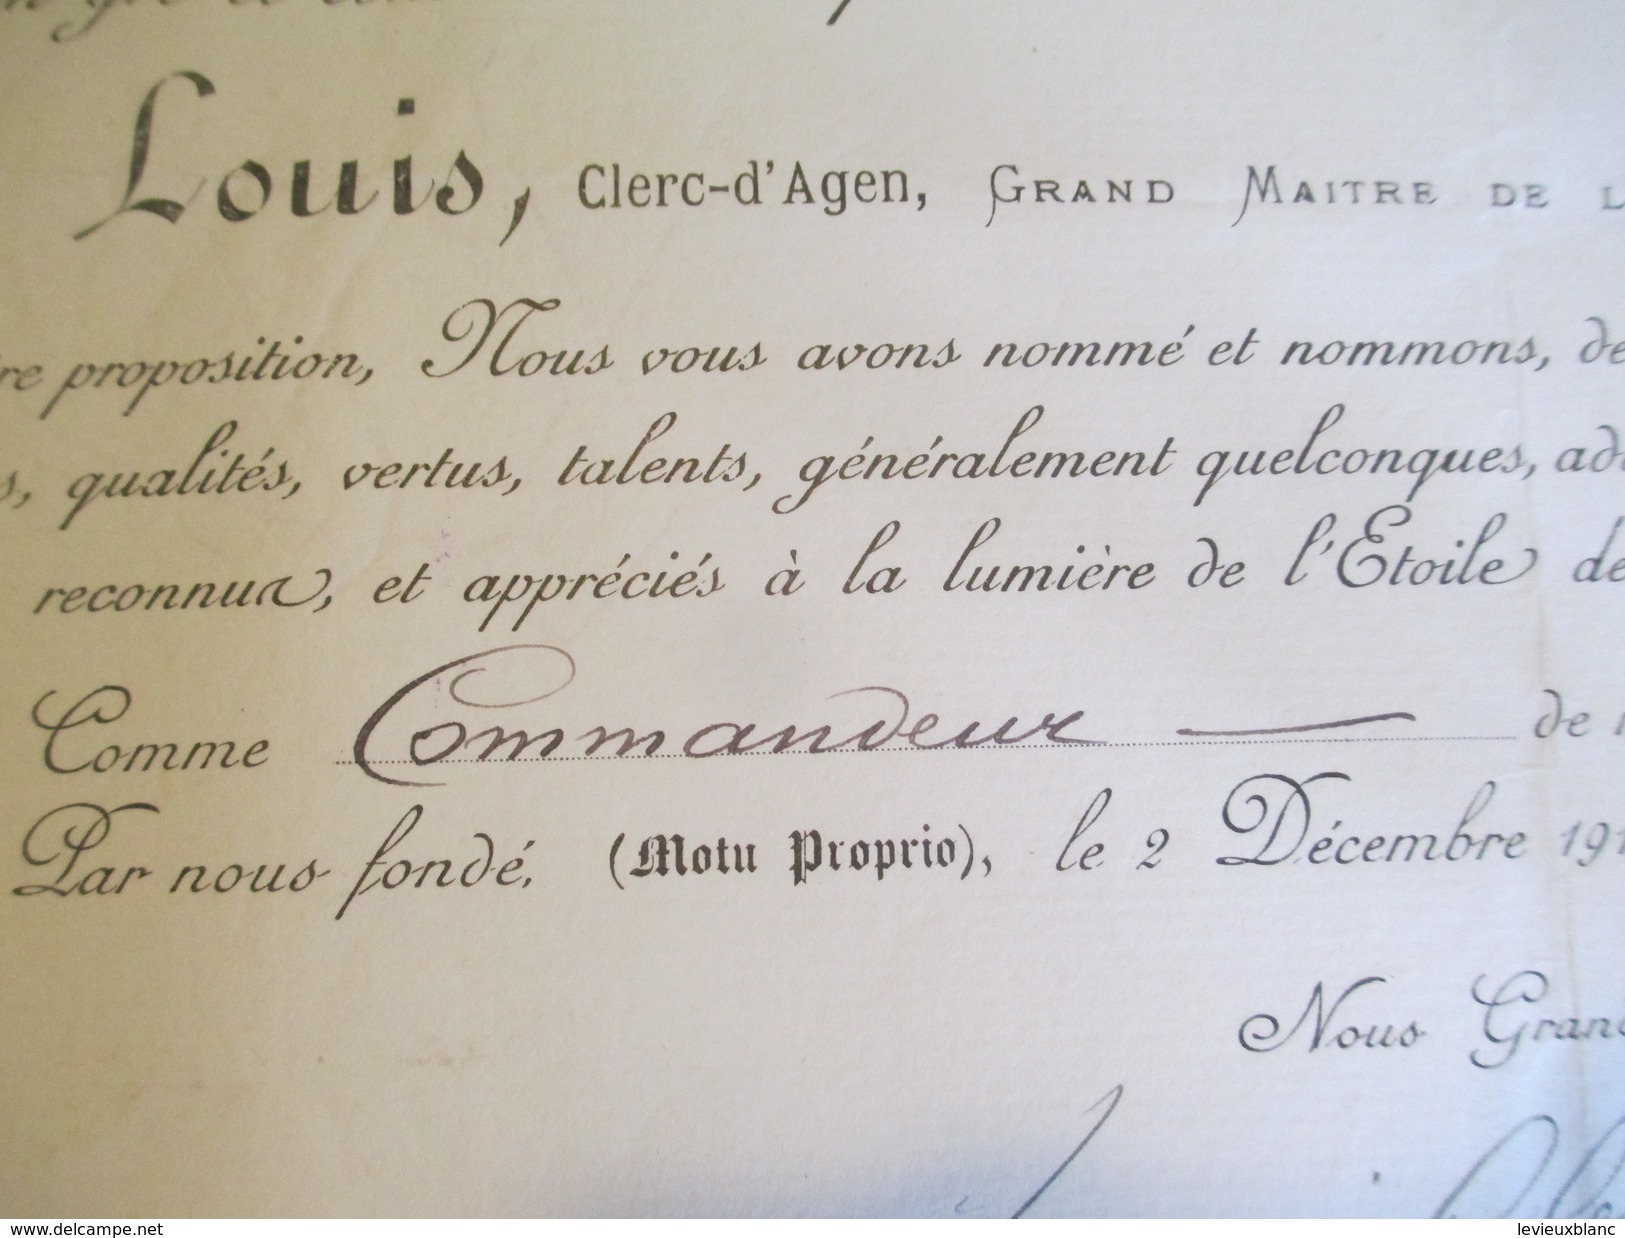 Louis, Clerc-d'Agen, GRAND MAITRE DE L
re proposition, Nous vous avons nommé et nommons, de
s, qualités, vertus, talents, généralement quelconques,
reconnus, et appréciés à la lumière de l'Etoile de
Comme Commandeur — de
Par nous fondé. (Motu Proprio), le 2 Décembre 191
Nous Grand
delcampe.net
levieuxblanc